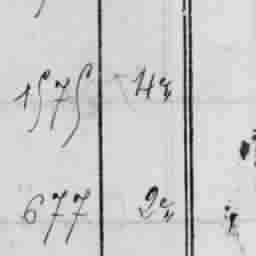 1575 4
677 2